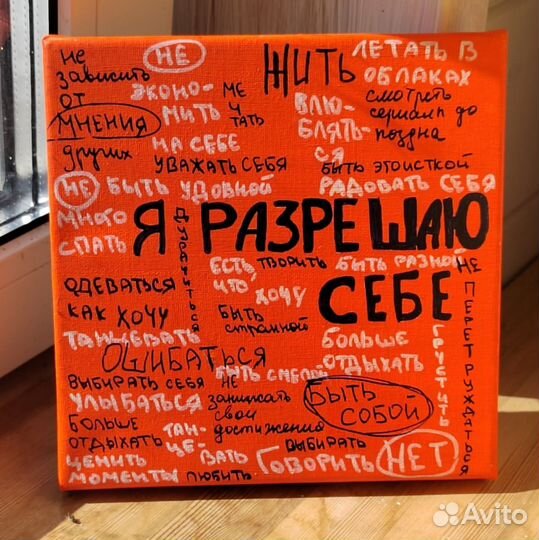 не зависить от мнения других
НЕ экономить на себе
мечтать
ЖИТЬ
летать в облаках
влюбляться
смотреть сериалы до поздна
уважать себя
быть эгоисткой
НЕ быть удобной
радовать себя
много спать
дурачиться
Я РАЗРЕШАЮ СЕБЕ
есть что хочу
творить
быть разной
не перетруждаться
одеваться как хочу
быть странной
танцевать
больше отдыхать
грустить
ошибаться
быть смелой
выбирать себя
не занижать свои достижения
быть собой
улыбаться
больше отдыхать
танцевать
выбирать
ценить моменты
любить
говорить НЕТ
Avito